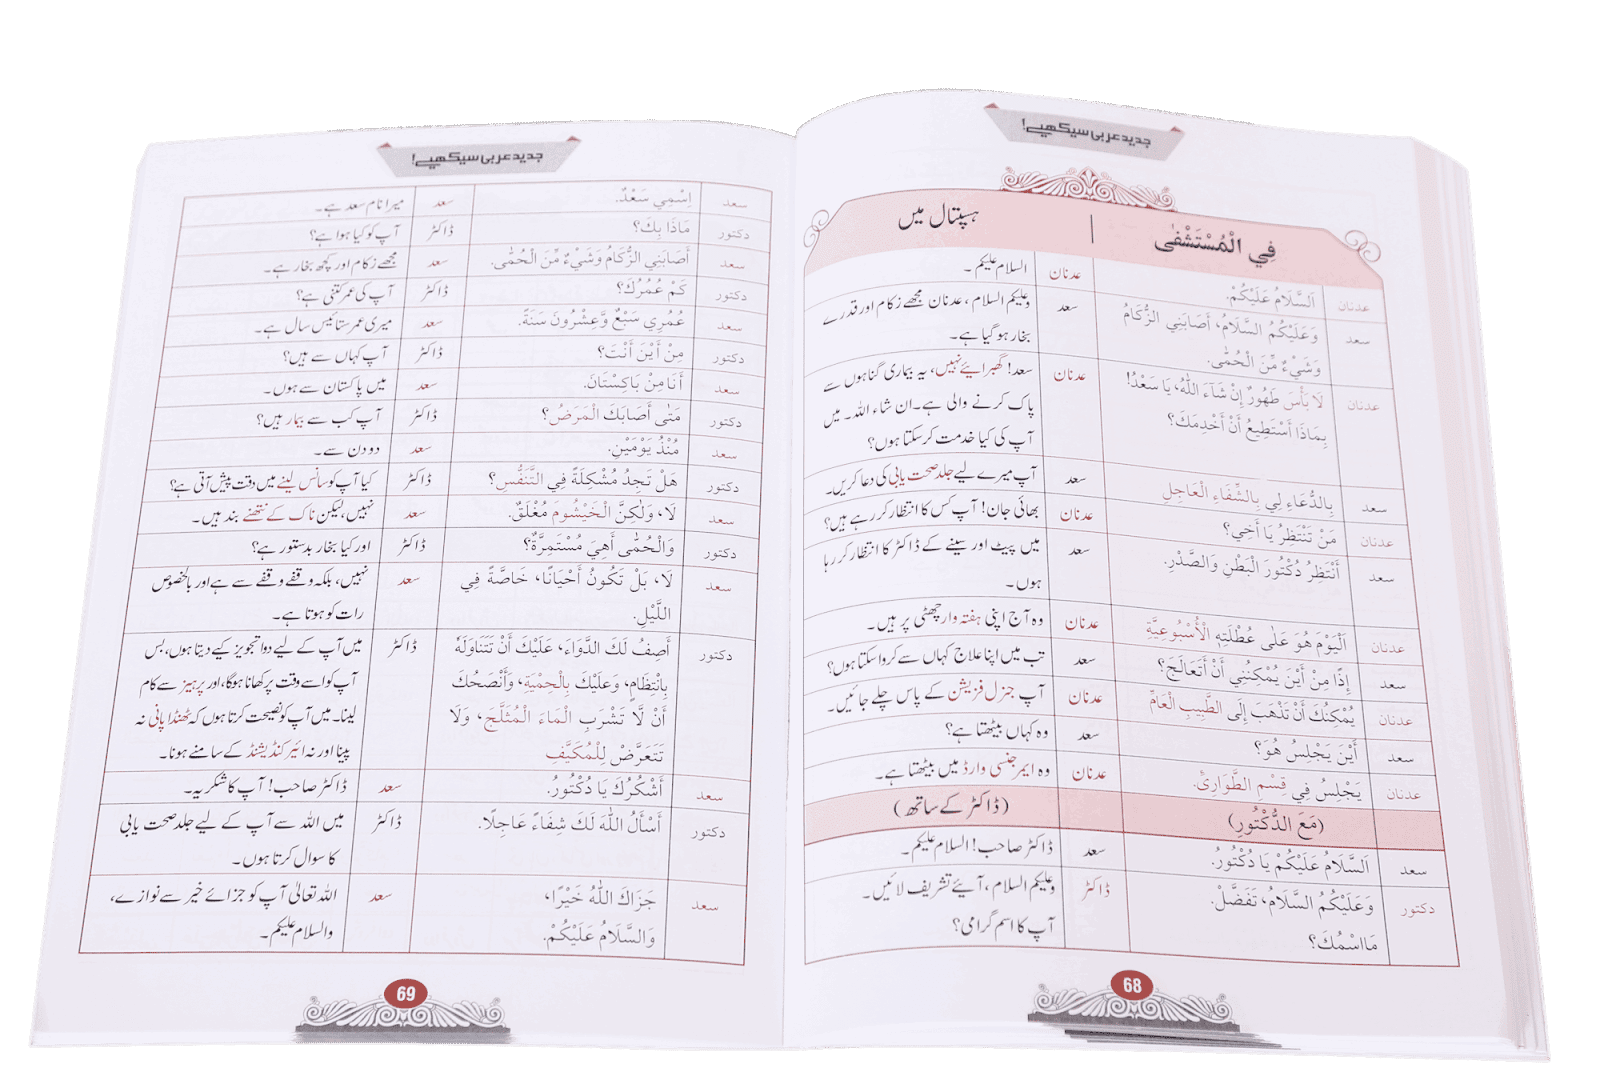 جدید عربی سیکھیے!
فِي الْمُسْتَشْفٰى | ہسپتال میں
عدنان اَلسَّلَامُ عَلَيْكُمْ. عدنان السلام علیکم۔
سعد وَعَلَيْكُمُ السَّلَامُ، أَصَابَنِي الزُّكَامُ سعد وعلیکم السلام، عدنان مجھے زکام اور قدرے
وَشَيْءٌ مِّنَ الْحُمّٰى. بخار ہو گیا ہے۔
عدنان لَا بَأْسَ طَهُورٌ إِنْ شَآءَ اللّٰهُ، يَا سَعْدُ! عدنان سعد! گھبرائیے نہیں، یہ بیماری گناہوں سے
بِمَاذَا أَسْتَطِيعُ أَنْ أَخْدِمَكَ؟ پاک کرنے والی ہے۔ ان شاء اللہ۔ میں
آپ کی کیا خدمت کر سکتا ہوں؟
سعد بِالدُّعَاءِ لِي بِالشِّفَاءِ الْعَاجِلِ سعد آپ میرے لیے جلد صحت یابی کی دعا کریں۔
عدنان مَنْ تَنْتَظِرُ يَا أَخِي؟ عدنان بھائی جان! آپ کس کا انتظار کر رہے ہیں؟
سعد أَنْتَظِرُ دُكْتُورَ الْبَطْنِ وَالصَّدْرِ. سعد میں پیٹ اور سینے کے ڈاکٹر کا انتظار کر رہا
ہوں۔
عدنان اَلْيَوْمَ هُوَ عَلٰى عُطْلَتِهِ الْأُسْبُوعِيَّةِ عدنان وہ آج اپنی ہفتہ وار چھٹی پر ہیں۔
سعد إِذًا مِنْ أَيْنَ يُمْكِنُنِي أَنْ أَتَعَالَجَ؟ سعد تب میں اپنا علاج کہاں سے کروا سکتا ہوں؟
عدنان يُمْكِنُكَ أَنْ تَذْهَبَ إِلَى الطَّبِيبِ الْعَامِّ عدنان آپ جنرل فزیشن کے پاس چلے جائیں۔
سعد أَيْنَ يَجْلِسُ هُوَ؟ سعد وہ کہاں بیٹھتا ہے؟
عدنان يَجْلِسُ فِي قِسْمِ الطَّوَارِئِ. عدنان وہ ایمرجنسی وارڈ میں بیٹھتا ہے۔
(مَعَ الدُّكْتُورِ) (ڈاکٹر کے ساتھ)
سعد اَلسَّلَامُ عَلَيْكُمْ يَا دُكْتُورُ. سعد ڈاکٹر صاحب! السلام علیکم۔
دكتور وَعَلَيْكُمُ السَّلَامُ، تَفَضَّلْ. ڈاکٹر وعلیکم السلام، آیئے تشریف لائیں۔
مَااسْمُكَ؟ آپ کا اسم گرامی؟
68
جدید عربی سیکھیے!
سعد اِسْمِي سَعْدٌ. سعد میرا نام سعد ہے۔
دكتور مَاذَا بِكَ؟ ڈاکٹر آپ کو کیا ہوا ہے؟
سعد أَصَابَنِي الزُّكَامُ وَشَيْءٌ مِّنَ الْحُمّٰى. سعد مجھے زکام اور کچھ بخار ہے۔
دكتور كَمْ عُمُرُكَ؟ ڈاکٹر آپ کی عمر کتنی ہے؟
سعد عُمُرِي سَبْعٌ وَّعِشْرُونَ سَنَةً. سعد میری عمر ستائیس سال ہے۔
دكتور مِنْ أَيْنَ أَنْتَ؟ ڈاکٹر آپ کہاں سے ہیں؟
سعد أَنَا مِنْ بَاكِسْتَانَ. سعد میں پاکستان سے ہوں۔
دكتور مَتٰى أَصَابَكَ الْمَرَضُ؟ ڈاکٹر آپ کب سے بیمار ہیں؟
سعد مُنْذُ يَوْمَيْنِ. سعد دو دن سے۔
دكتور هَلْ تَجِدُ مُشْكِلَةً فِي التَّنَفُّسِ؟ ڈاکٹر کیا آپ کو سانس لینے میں دقت پیش آتی ہے؟
سعد لَا، وَلٰكِنَّ الْخَيْشُومَ مُغْلَقٌ. سعد نہیں، لیکن ناک کے نتھنے بند ہیں۔
دكتور وَالْحُمّٰى أَهِيَ مُسْتَمِرَّةٌ؟ ڈاکٹر اور کیا بخار بدستور ہے؟
سعد لَا، بَلْ تَكُونُ أَحْيَانًا، خَاصَّةً فِي سعد نہیں، بلکہ وقفے وقفے سے ہے اور بالخصوص
اللَّيْلِ. رات کو ہوتا ہے۔
دكتور أَصِفُ لَكَ الدَّوَاءَ، عَلَيْكَ أَنْ تَتَنَاوَلَهٗ ڈاکٹر میں آپ کے لیے دوا تجویز کیے دیتا ہوں، بس
بِانْتِظَامٍ، وَعَلَيْكَ بِالْحِمْيَةِ، وَأَنْصَحُكَ آپ کو اسے وقت پر کھانا ہوگا، اور پرہیز سے کام
أَنْ لَّا تَشْرَبَ الْمَاءَ الْمُثَلَّجَ، وَلَا لینا۔ میں آپ کو نصیحت کرتا ہوں کہ ٹھنڈا پانی نہ
تَتَعَرَّضْ لِلْمُكَيَّفِ پینا اور نہ ائیر کنڈیشنڈ کے سامنے ہونا۔
سعد أَشْكُرُكَ يَا دُكْتُورُ. سعد ڈاکٹر صاحب! آپ کا شکریہ۔
دكتور أَسْأَلُ اللّٰهَ لَكَ شِفَاءً عَاجِلًا. ڈاکٹر میں اللہ سے آپ کے لیے جلد صحت یابی
کا سوال کرتا ہوں۔
سعد جَزَاكَ اللّٰهُ خَيْرًا، سعد اللہ تعالیٰ آپ کو جزائے خیر سے نوازے،
وَالسَّلَامُ عَلَيْكُمْ. والسلام علیکم۔
69